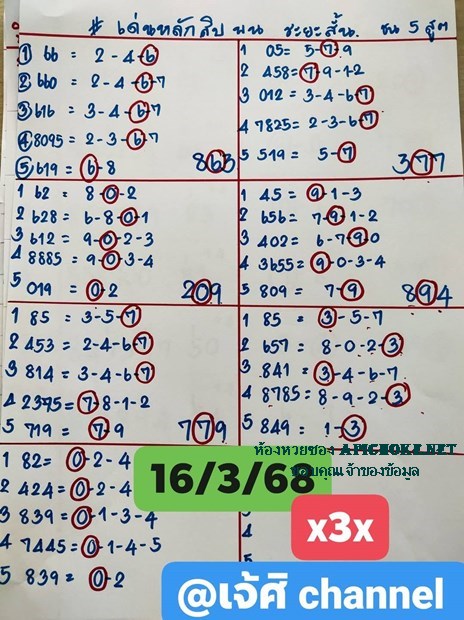 # เด่นหลักสิบ บน ระยะสั้น. ชน 5 สูตร
1 66 = 2-4-6
2 660 = 2-4-6-7
3 616 = 3-4-6-7
4 8095 = 2-3-6-7
5 619 = 6-8
863
1 05= 5-7-9
2 458= 7-9-1-2
3 012 = 3-4-6-7
4 7825= 2-3-6-7
5 519 = 5-7
377
1 62 = 8-0-2
2 628 = 6-8-0-1
3 612 = 9-0-2-3
4 8885 = 9-0-3-4
5 019 = 0-2
209
1 45 = 9-1-3
2 656 = 7-9-1-2
3 402 = 6-7-9-0
4 3655= 9-0-3-4
5 809 = 7-9
894
1 85 = 3-5-7
2 453 = 2-4-6-7
3 814 = 3-4-6-7
4 2375 = 7-8-1-2
5 719 = 7-9
779
1 85 = 3-5-7
2 657 = 8-0-2-3
3 841 = 3-4-6-7
4 8785 = 8-9-2-3
5 849 = 1-3
1 82= 0-2-4
2 424 = 0-2-4
3 839 = 0-1-3-4
4 7445= 0-1-4-5
5 839 = 0-2
ห้องหวยซอง APICHOKE.NET
ขอบคุณเจ้าของข้อมูล
16/3/68
x3x
@เจ้ศิ channel